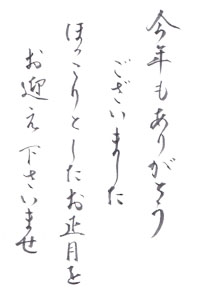 今年もありがとう
ございました
ほっこりとしたお正月を
お迎え下さいませ